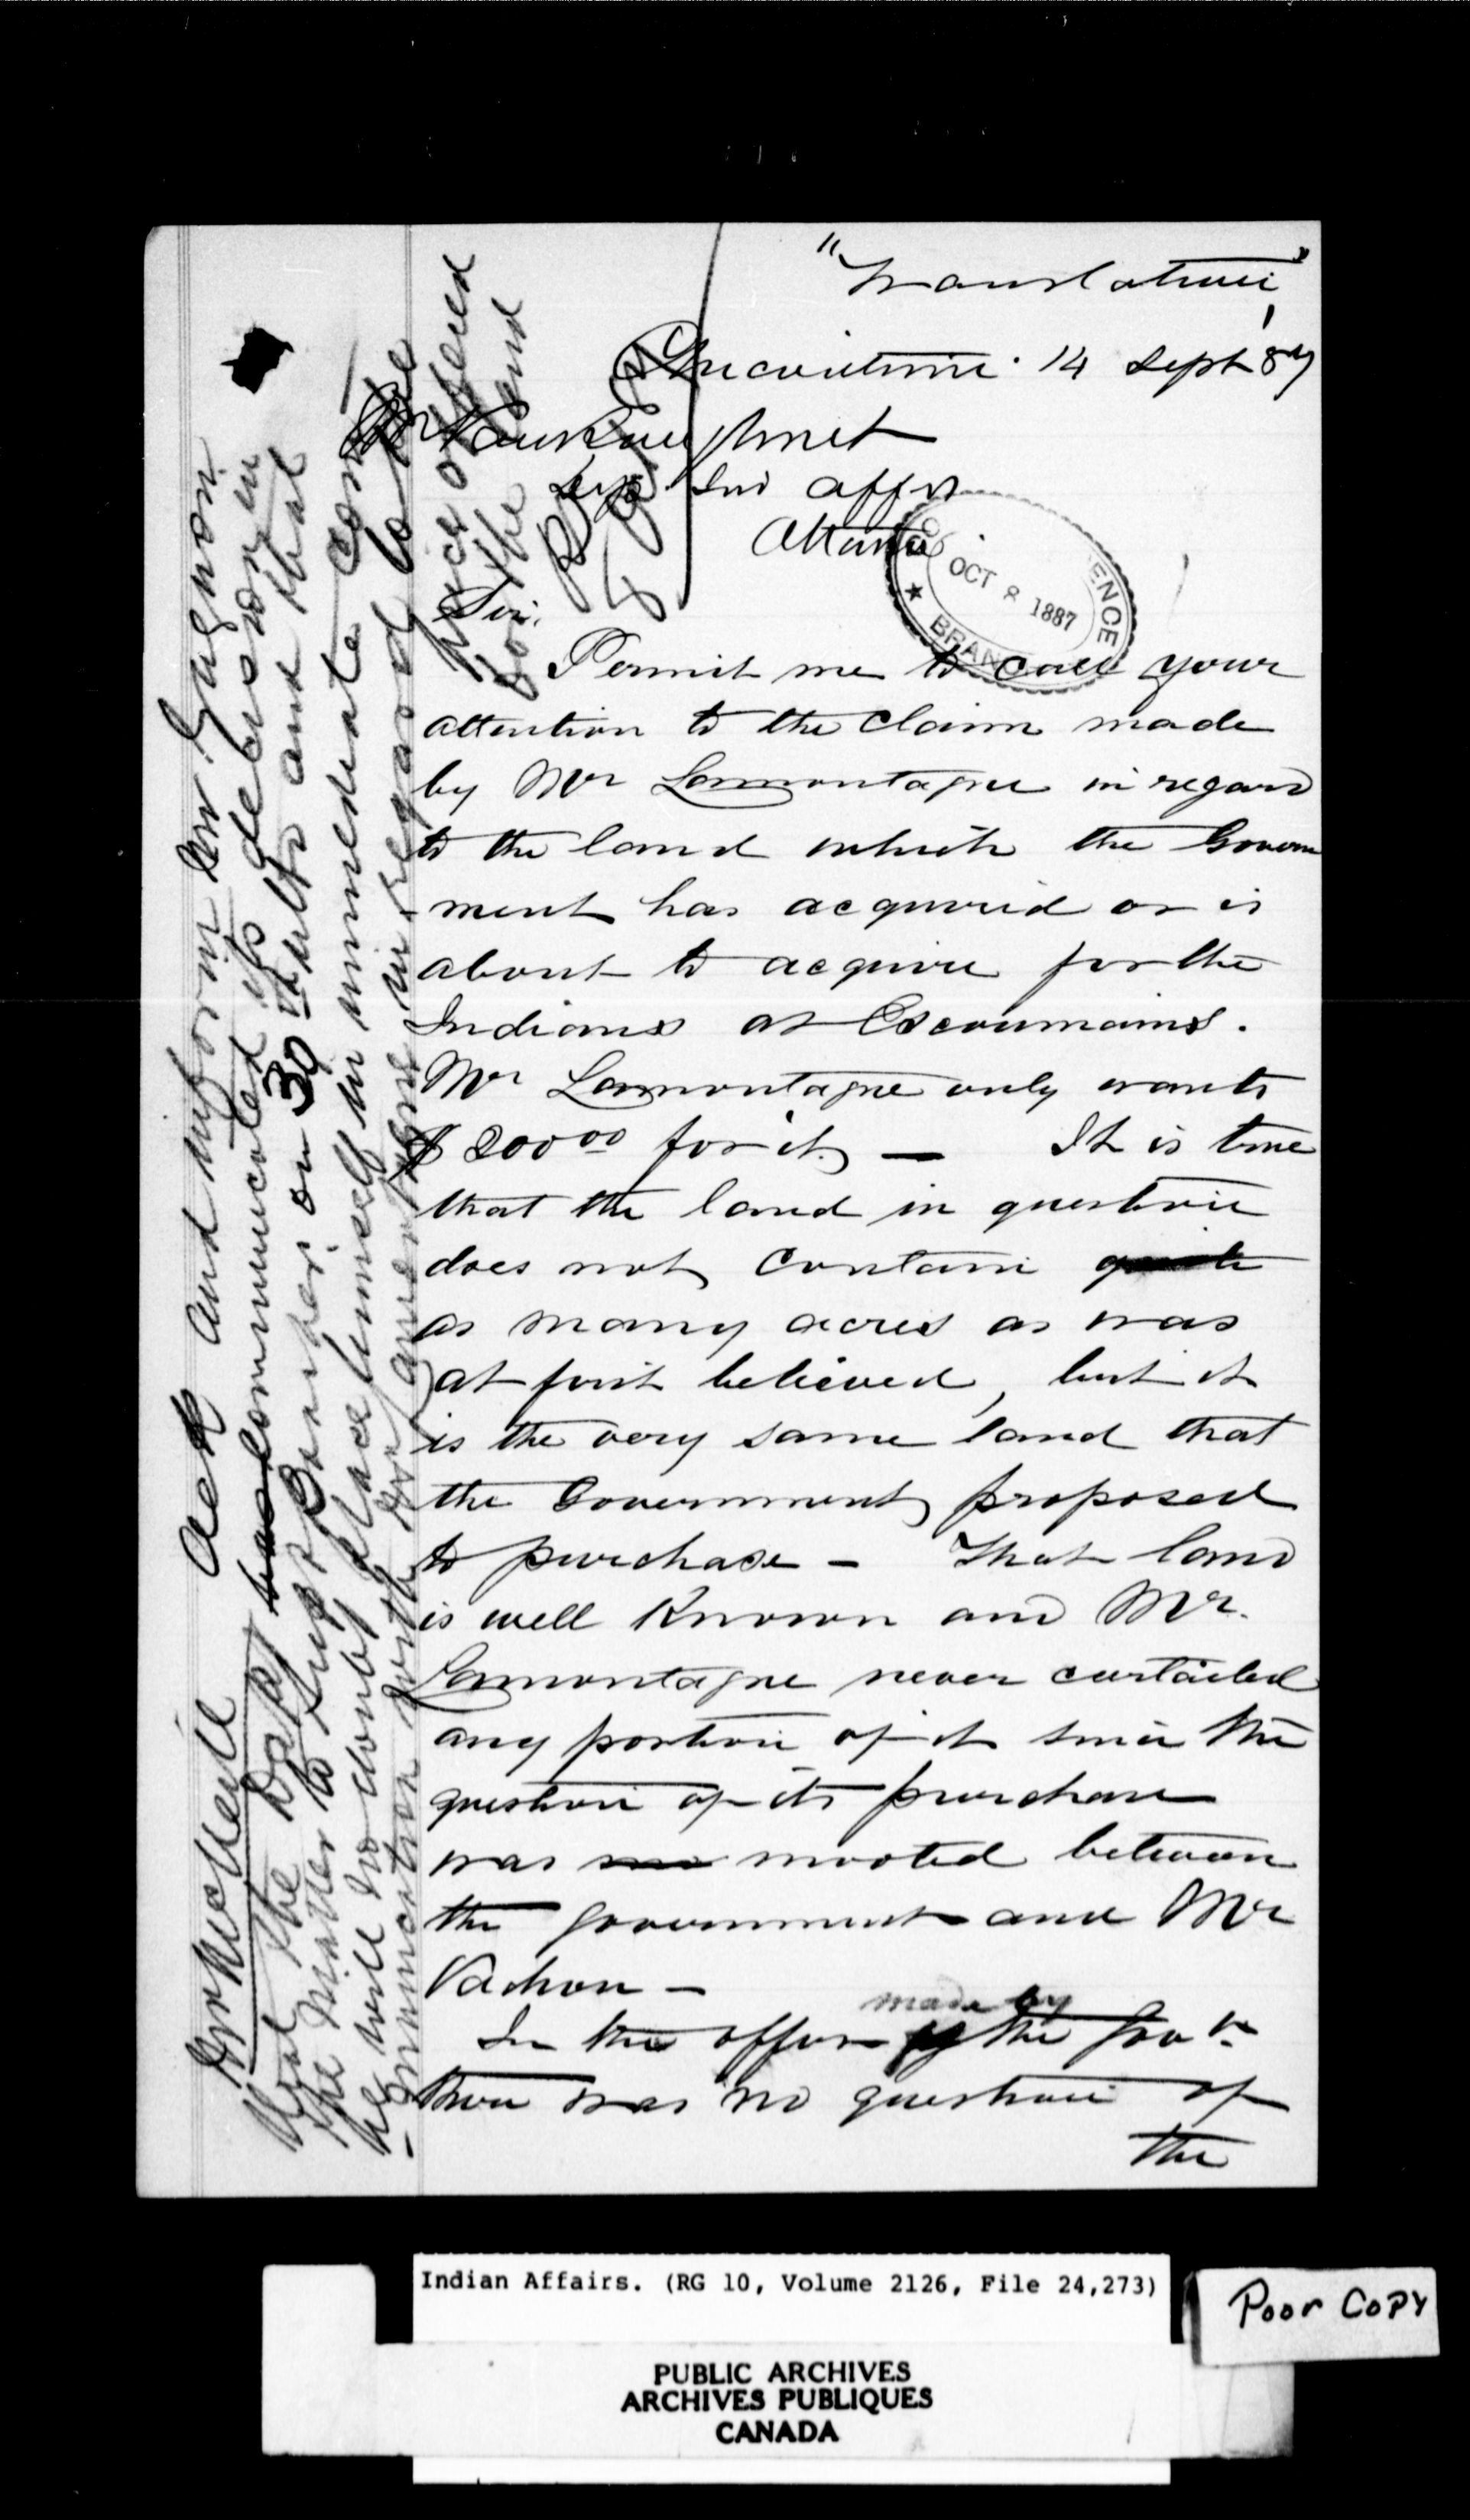 "Translation"
Chicoutimi 14 Sept 87
Mr Vankoughnet
Dep Ind Affrs
Ottawa
OCT 8 1887
BRAN
ENCE
Sir,
Permit me to call your
attention to the claim made
by Mr Lamontagne in regard
to the land which the Govern
ment has acquired or is
about to acquire for the
Indians at Escoumains.
Mr Lamontagne only wants
$ 200 00 for it — It is true
that the land in question
does not contain quite
as many acres as was
at first believed, but it
is the very same land that
the Government proposed
to purchase – That land
is well known and Mr.
Lamontagne never curtailed
any portion of it since the
question of its purchase
was mooted between
the government and Mr
Vachon –
In the offer made by the Govt.
there was no question of
the
Mr McNeill Ack and inform Mr Gagnon
that the Dept has communicated its decision in
the matter to Supt Boucher on 30th ulto and that
he will no doubt place himself in immediate com
-munication with Mr Lamontagne in regard to the
price offered
for the land
Indian Affairs. (RG 10, Volume 2126, File 24,273)
Poor Copy
PUBLIC ARCHIVES
ARCHIVES PUBLIQUES
CANADA